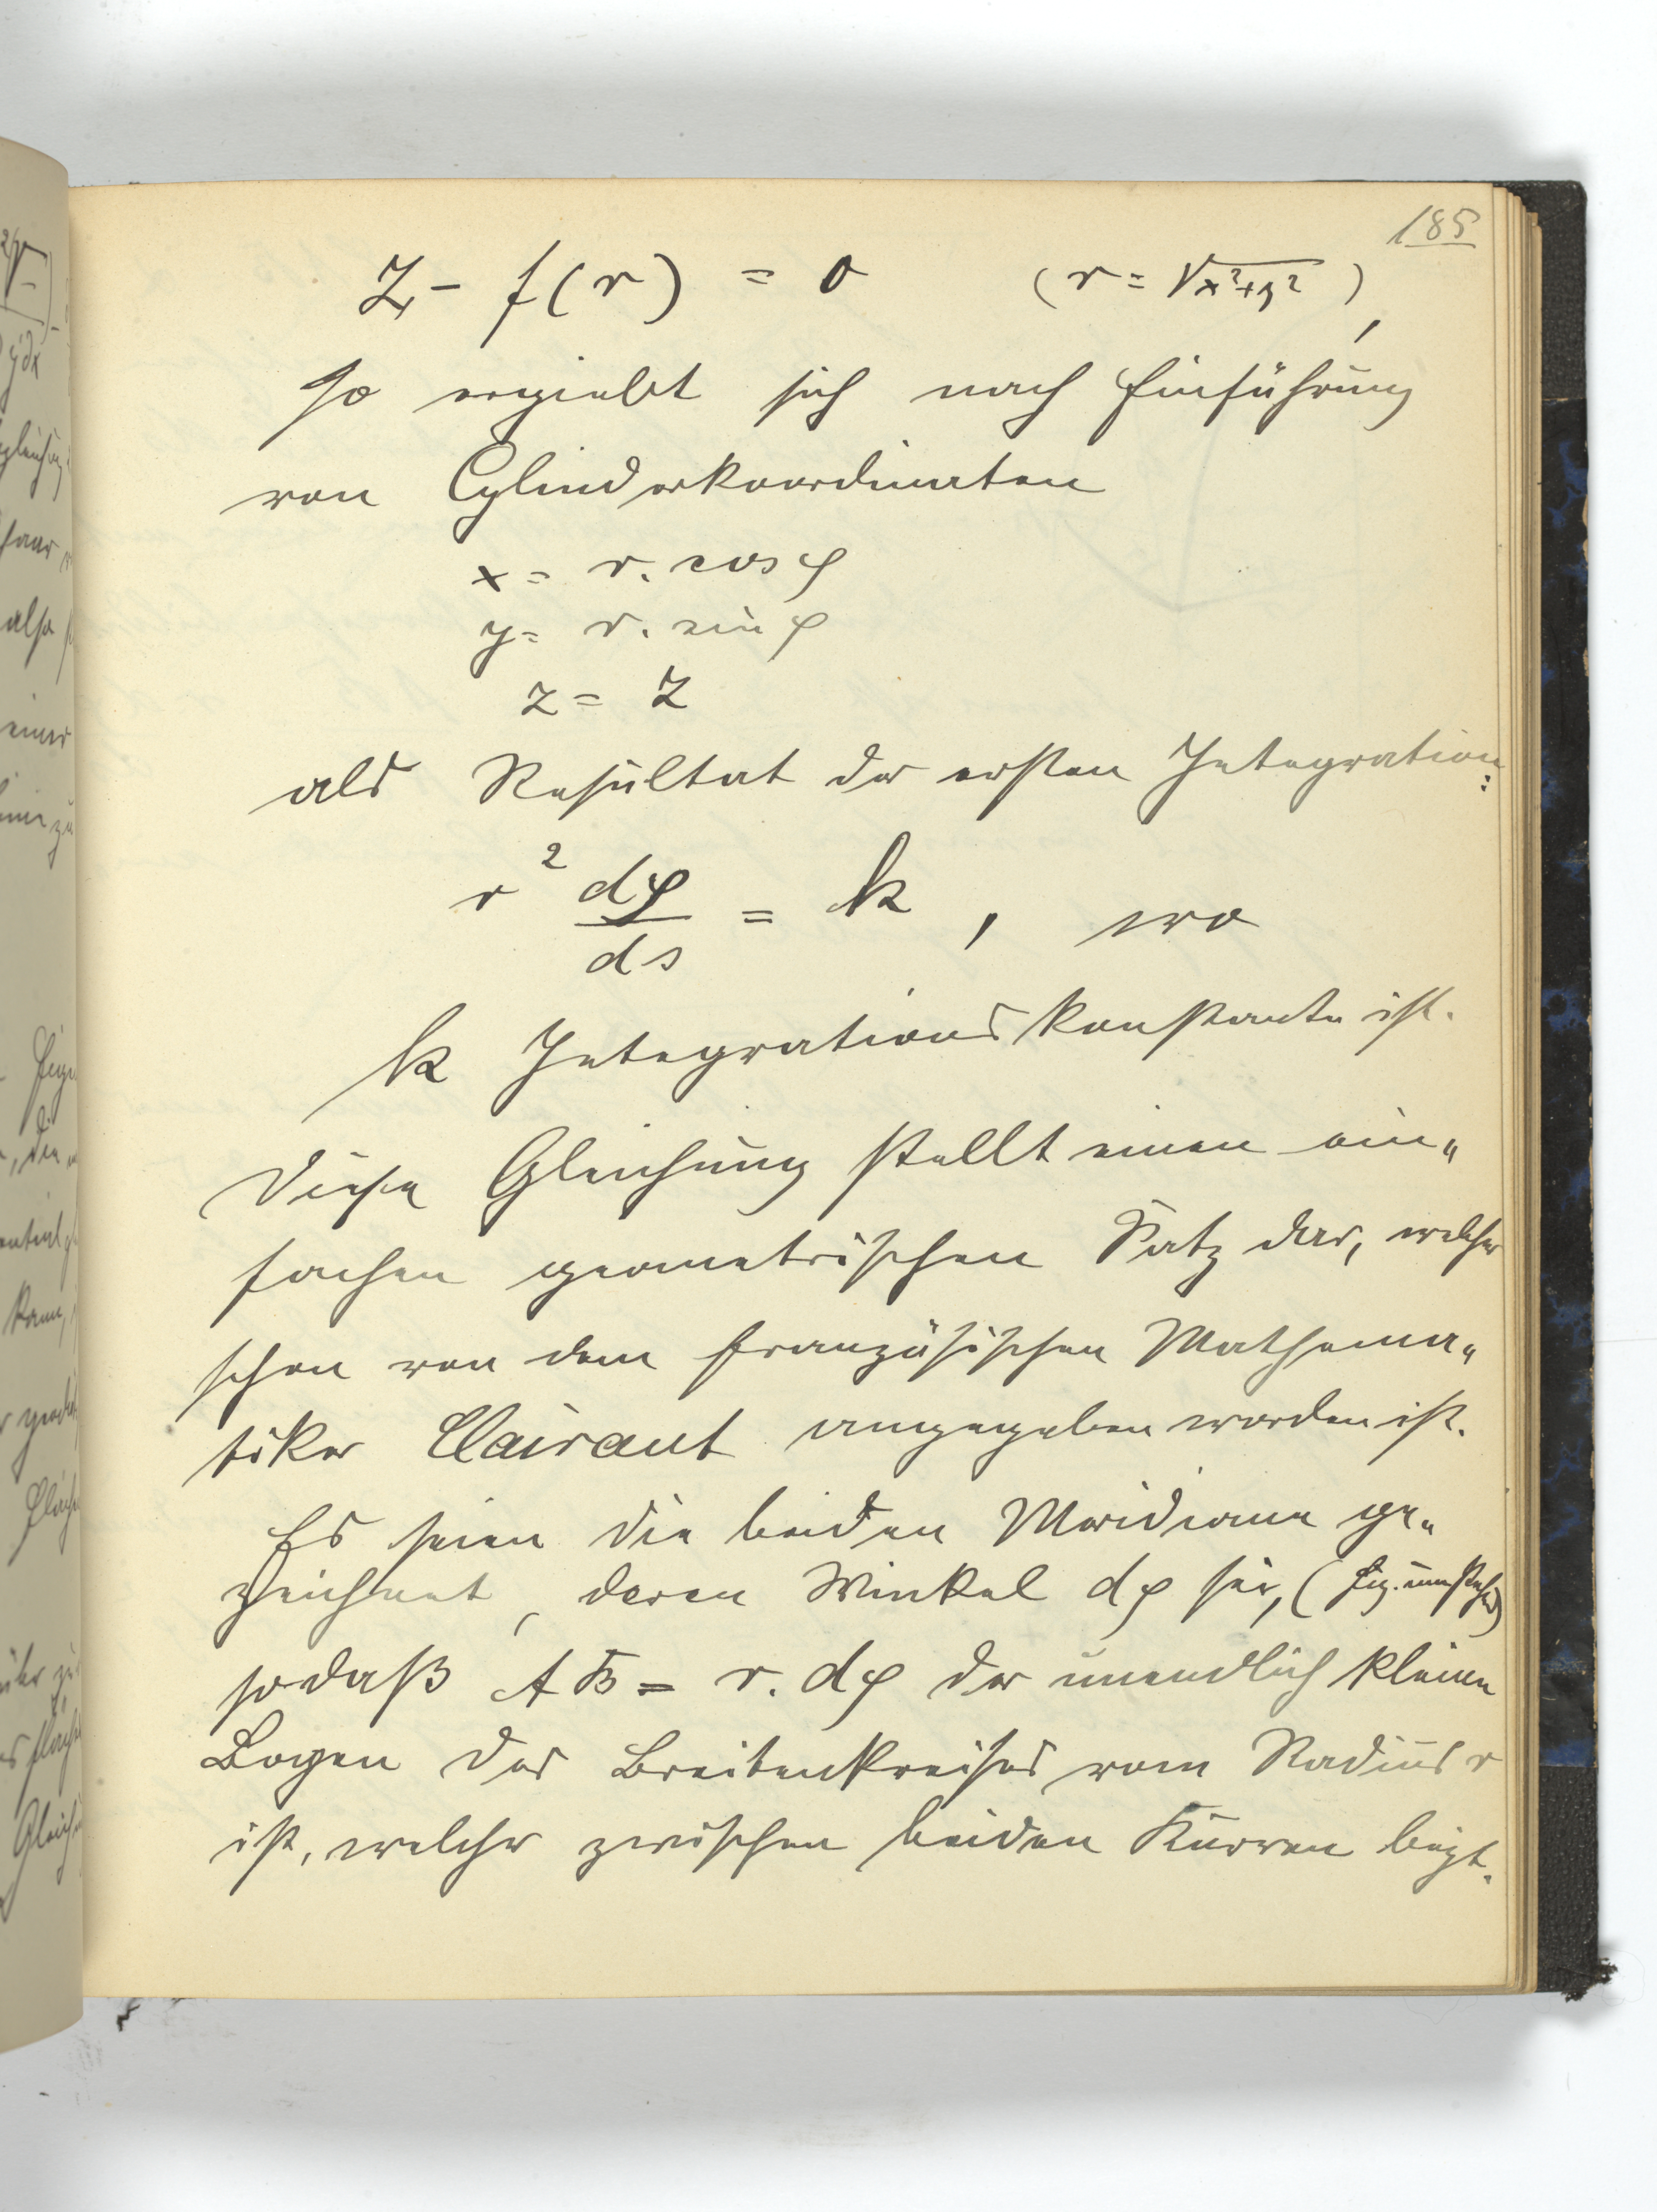 185
z - f(r) = 0 (r = √x²+y²),
so ergiebt sich nach Einführung
von Cylinderkoordinaten
x = r. cos φ
y = r. sin φ
z = z
als Resultat der ersten Integration:
r² dφ/ds = k, wo
k Integrationskonstante ist.
Diese Gleichung stellt einen ein„
fachen geometrischen Satz dar, welcher
schon von dem französischen Mathema„
tiker Clairaut angegeben worden ist.
Es seien die beiden Meridiane ge„
zeichnet, deren Winkel dφ sei, (Fig. umstehend)
sodaß AB = r. dφ der unendlich kleine
Bogen des Breitenkreises vom Radius r
ist, welcher zwischen beiden Kurven liegt.